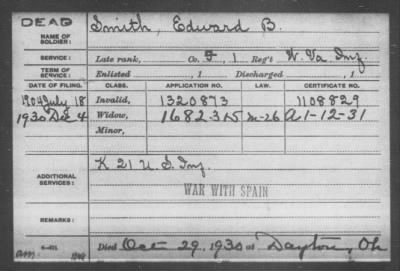 DEAD
NAME OF SOLDIER: Smith, Edward B.
SERVICE: Late rank, Co. F, 1 Reg't W. Va. Inf.
TERM OF SERVICE: Enlisted , 1 Discharged , 1
DATE OF FILING. CLASS. APPLICATION NO. LAW. CERTIFICATE NO.
1904 July 18 Invalid, 1320873 1108829
1930 Dec 4 Widow, 1682315 M-26 A 1-12-31
Minor,
K 21 U.S. Inf.
ADDITIONAL SERVICES:
WAR WITH SPAIN
REMARKS:
Died Oct 29, 1930 at Dayton, Oh